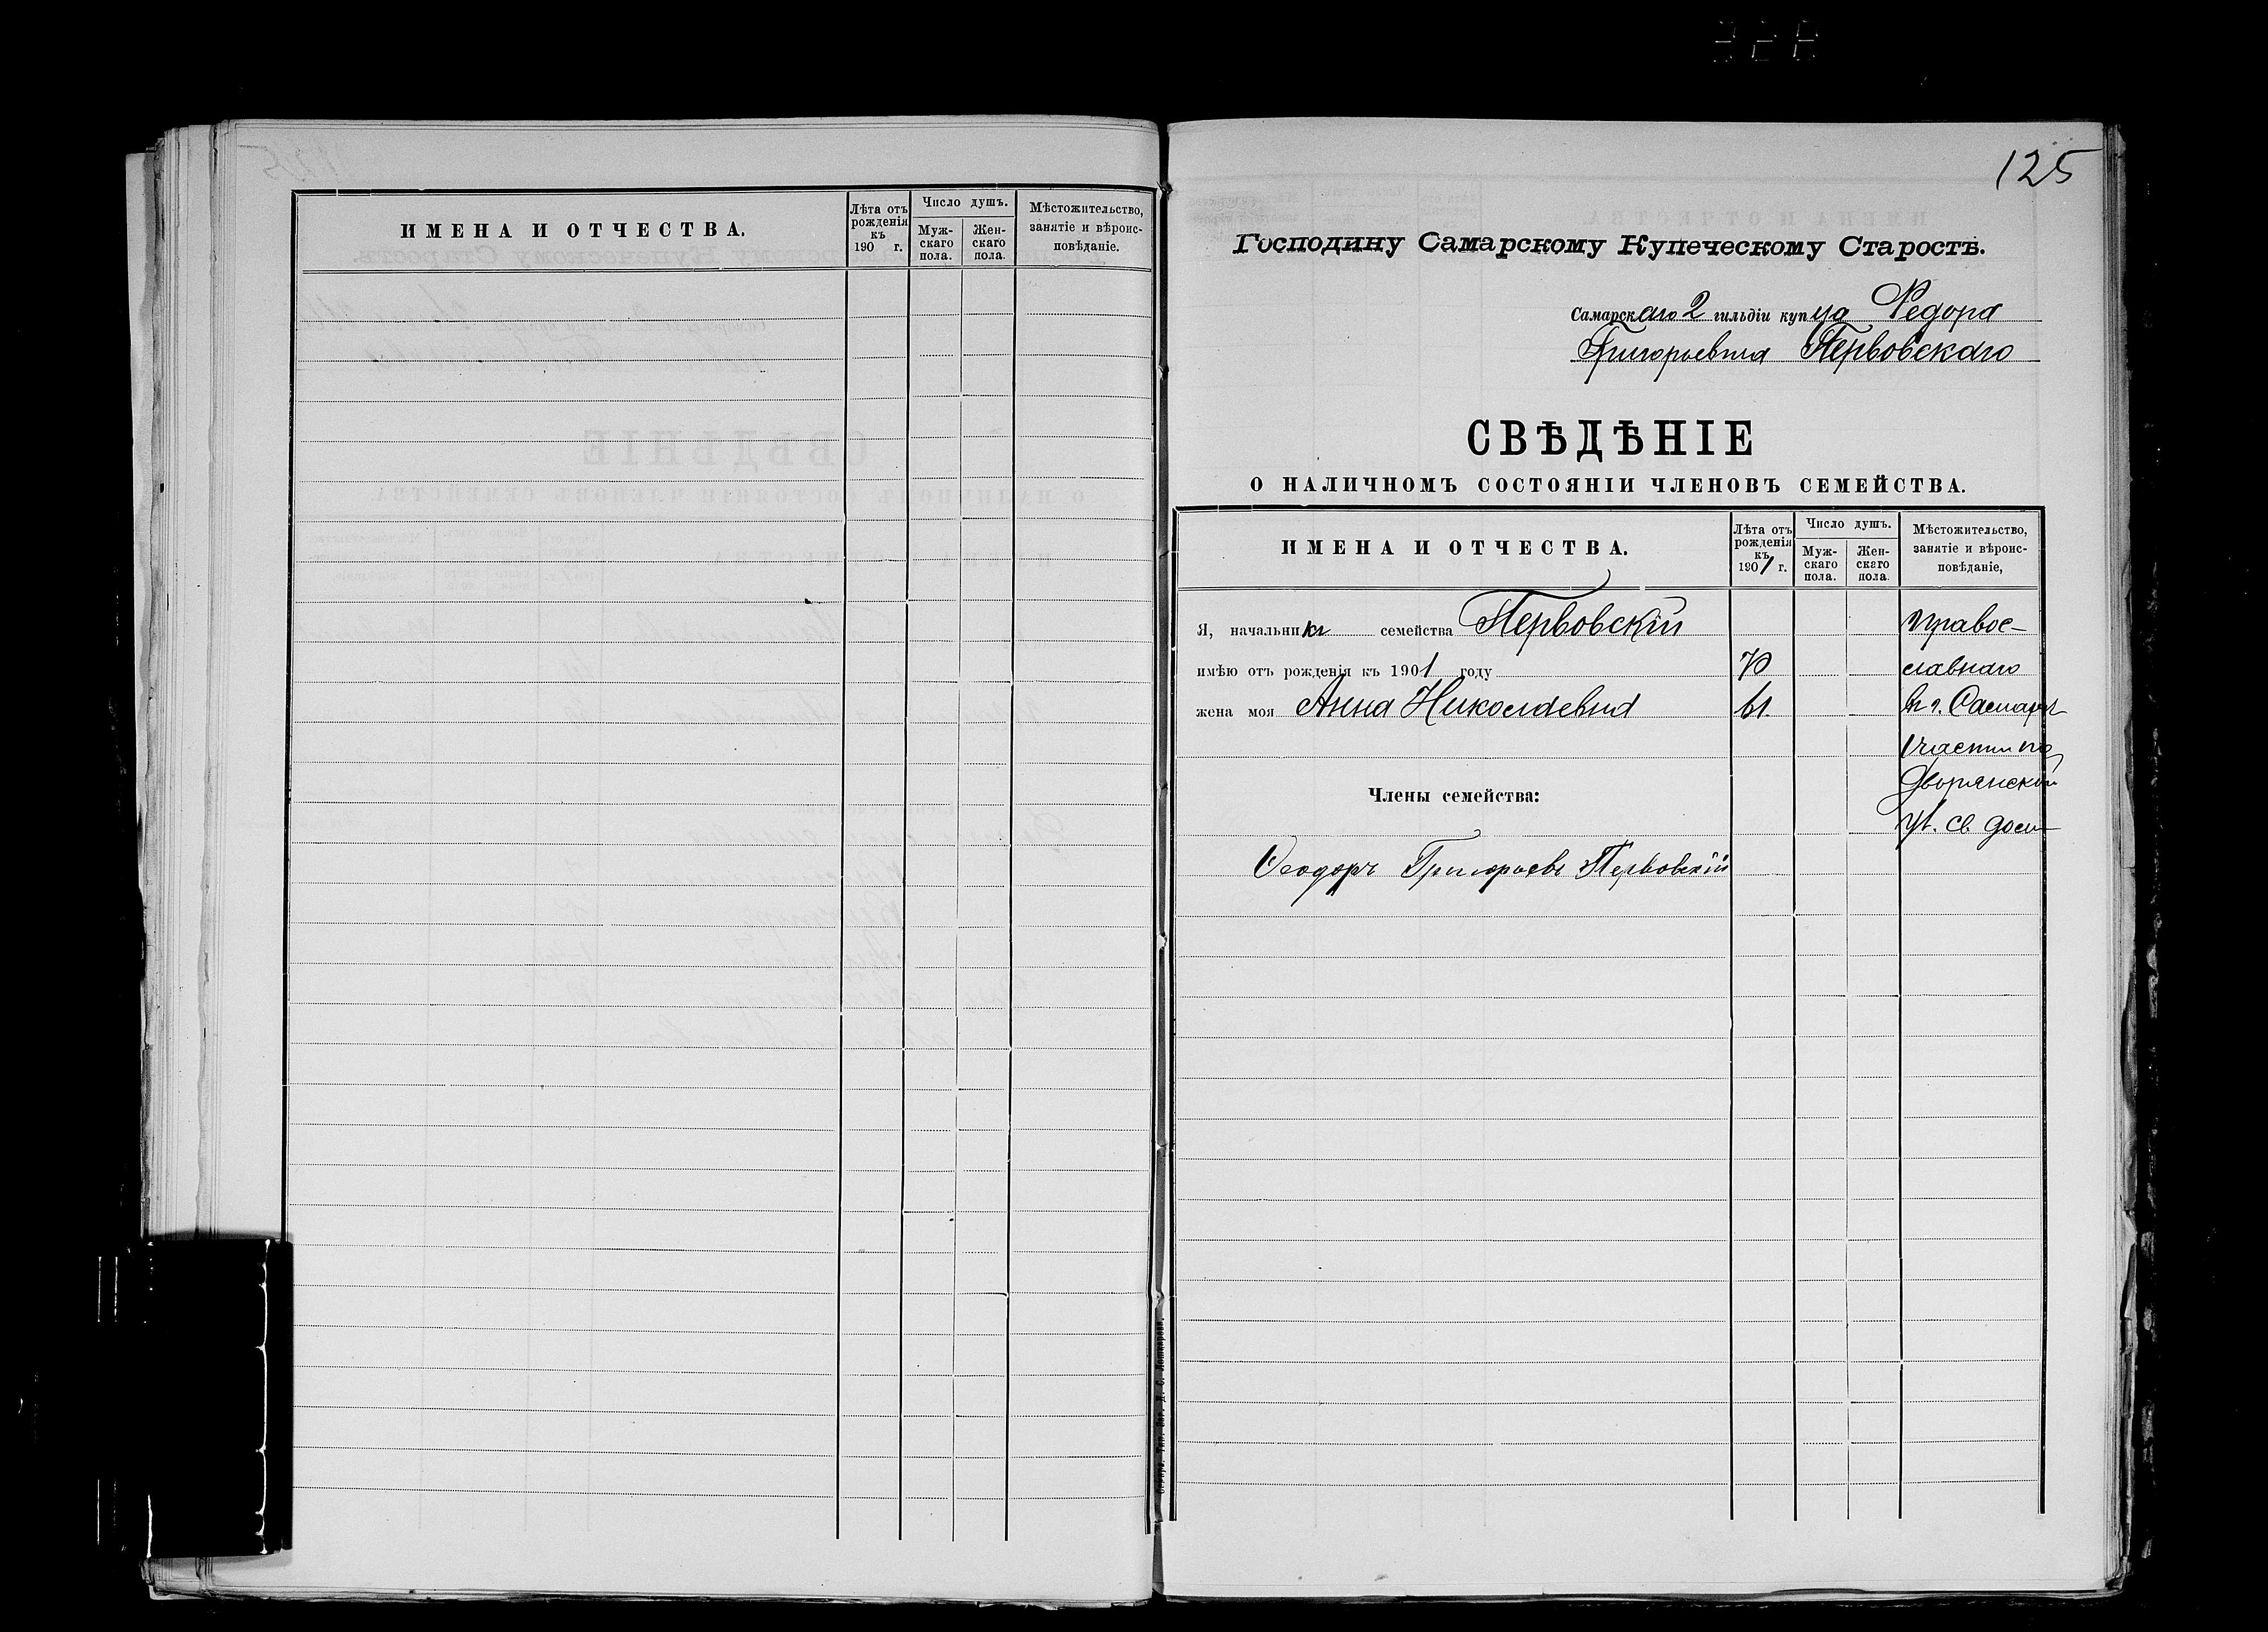 ИМЕНА И ОТЧЕСТВА.
Лѣта отъ рожденія къ 190 г.
Число душъ.
Муж-скаго пола.
Жен-скаго пола.
Мѣстожительство, занятіе и вѣроис-повѣданіе.
125
Господину Самарскому Купеческому Старостѣ.
Самарскаго 2 гильдіи купца Федора
Григорьевича Первовскаго
СВѢДѢНІЕ
О НАЛИЧНОМЪ СОСТОЯНІИ ЧЛЕНОВЪ СЕМЕЙСТВА.
ИМЕНА И ОТЧЕСТВА.
Лѣта отъ рожденія къ 1901 г.
Число душъ.
Муж-скаго пола.
Жен-скаго пола.
Мѣстожительство, занятіе и вѣроис-повѣданіе,
Я, начальникъ семейства Первовскій Правос-
имѣю отъ рожденія къ 1901 году 70 славнаго
жена моя Анна Николаевна 61. въ г. Самарѣ
1 части по
Дворянской
Члены семейства:
ул. св. домъ
Ѳеодоръ Григорьевъ Первовскій